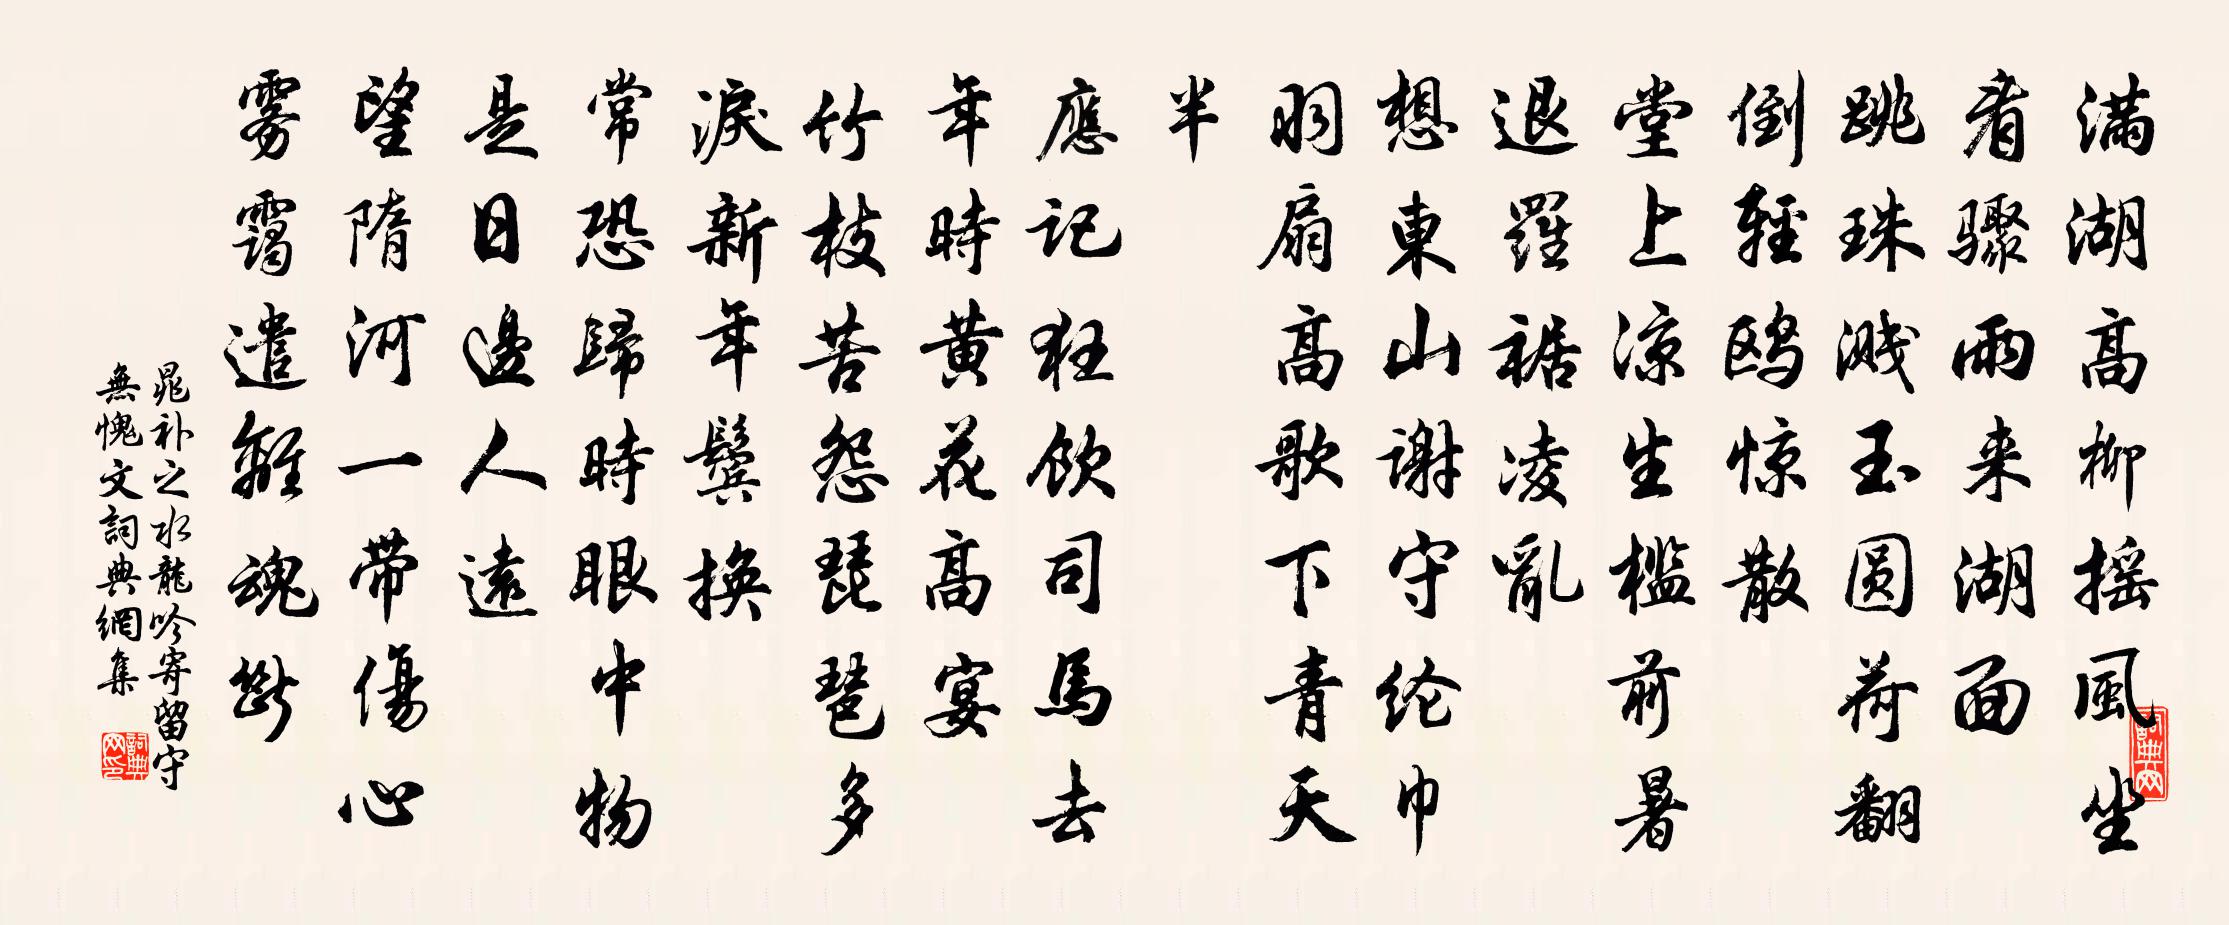 满湖高柳摇風坐
看驟雨来湖面
跳珠溅玉圆荷翻
倒輕鸥惊散
堂上凉生槛前暑
退羅裾凌亂
想東山謝守纶巾
羽扇高歌下青天
半
應记狂飲司馬去
年時黄花高宴
竹枝苦怨琵琶多
淚新年鬓换
常恐歸時眼中物
是日邊人遠
望隋河一帶傷心
雾霭遣離魂斷
晁补之水龍吟寄留守
無愧文詞典網集
詞典网
詞典网印